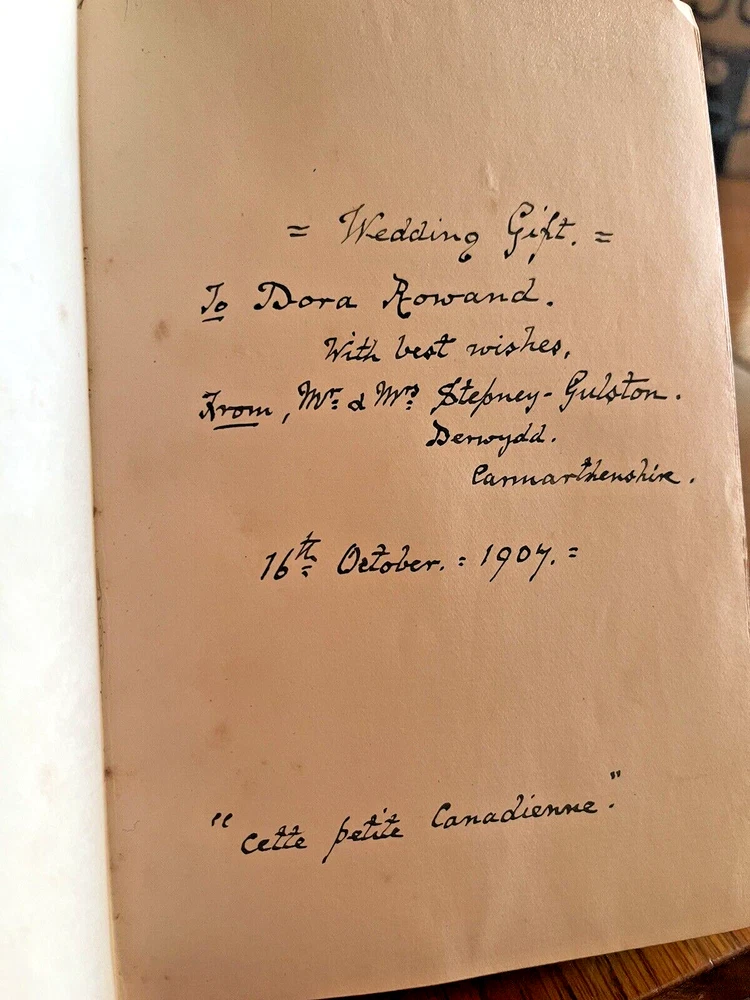 = Wedding Gift. =
To Dora Rowand.
With best wishes,
From, Mr. & Mrs. Stepney-Gulston.
Derwydd.
Carmarthenshire.
16th October. = 1907. =
"Cette petite Canadienne."